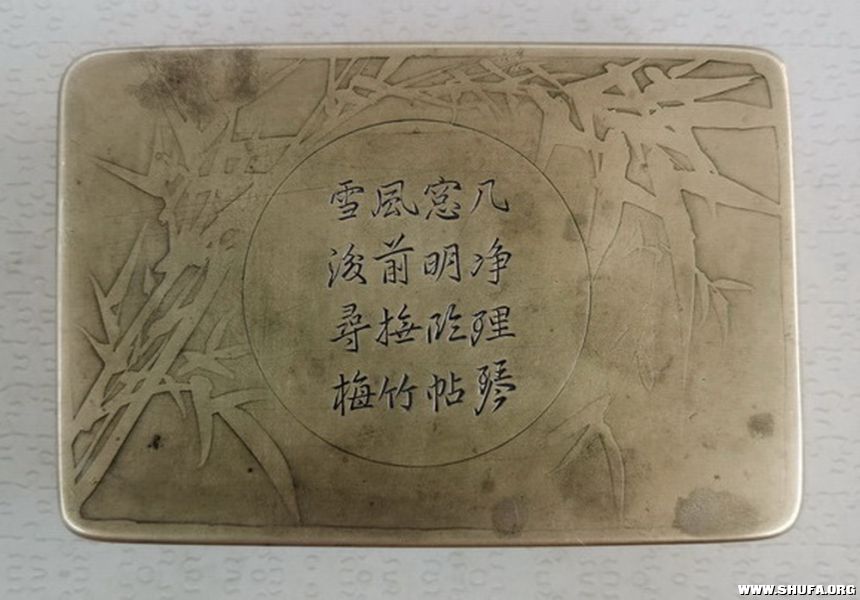 几净理琴
窓明临帖
風前撫竹
雪後尋梅
WWW.SHUFA.ORG